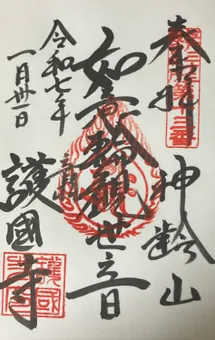 奉拝
神齢山
如意輪観世音
令和七年
一月卅一日
護國寺